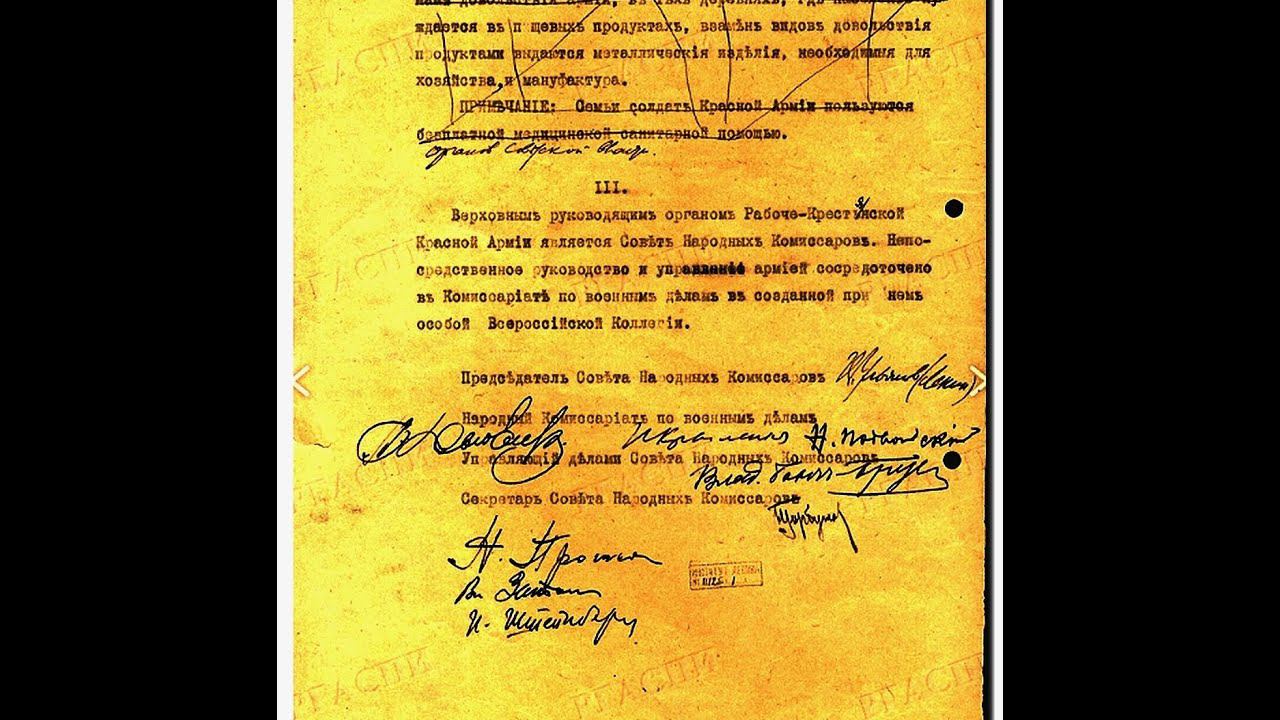 ждается въ пищевыхъ продуктахъ, взамѣнъ видовъ довольствія
продуктами выдаются металлическія издѣлія, необходимыя для
хозяйства, и мануфактура.
ПРИМѢЧАНІЕ: Семьи солдатъ Красной Арміи пользуются
безплатной медицинской санитарной помощью.
органов
III.
Верховнымъ руководящимъ органомъ Рабоче-Крестьянской
Красной Арміи является Совѣтъ Народныхъ Комиссаровъ. Непо-
средственное руководство и управленіе арміей сосредоточено
въ Комиссаріатѣ по военнымъ дѣламъ въ созданной при немъ
особой Всероссійской Коллегіи.
Предсѣдатель Совѣта Народныхъ Комиссаровъ В. Ульянов (Ленин)
Народный Комиссаріатъ по военнымъ дѣламъ
Н. Подвойский
Управляющій дѣлами Совѣта Народныхъ Комиссаровъ
Влад. Бонч-Бруевич
Секретарь Совѣта Народныхъ Комиссаровъ
Горбунов
И. Штейнберг
РГАСПИ
РГАСПИ